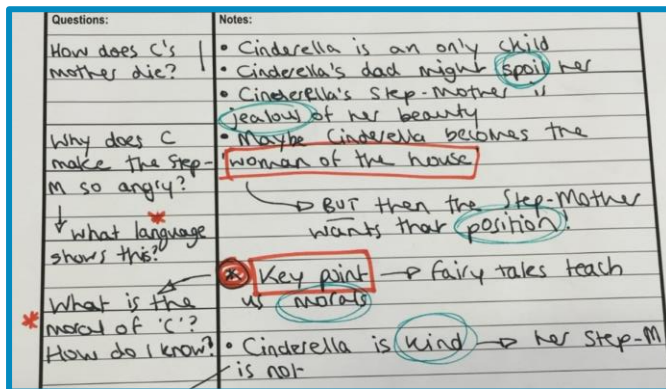 Questions:
How does C's
mother die?
Why does C
make the step-
M so angry?
what language
shows this?
What is the
moral of 'C'?
How do I know?
Notes:
• Cinderella is an only child
• Cinderella's dad might spoil her
• Cinderella's Step-Mother is
jealous of her beauty
• Maybe Cinderella becomes the
'woman of the house
BUT then the Step-Mother
wants that position!
* Key point → fairy tales teach
us morals
• Cinderella is kind → her Step-M
is not